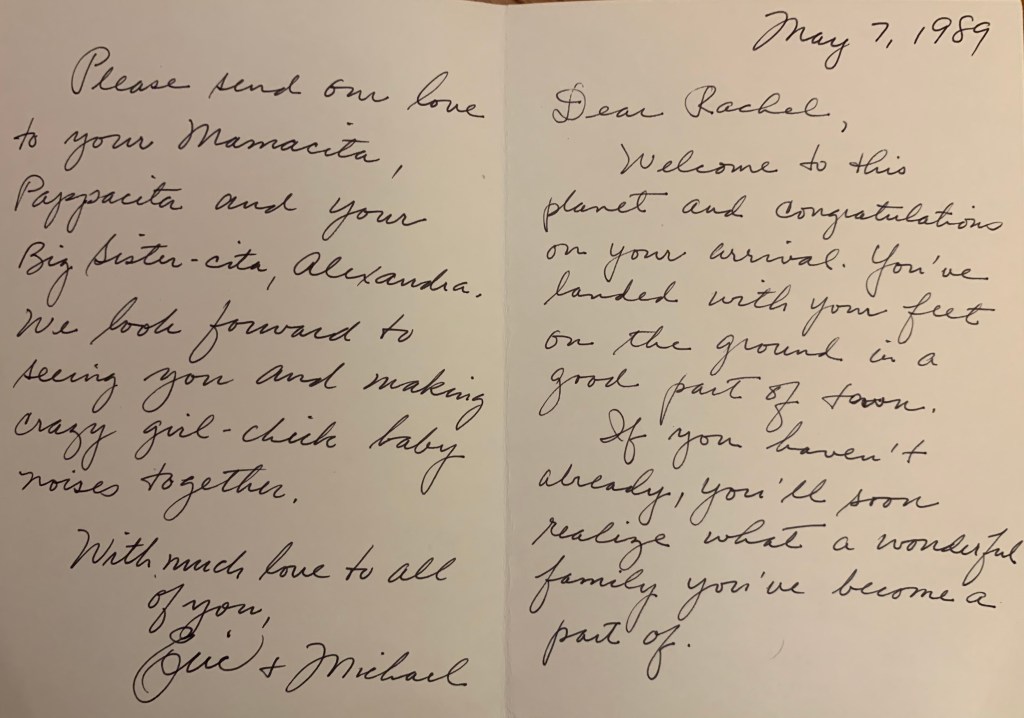 May 7, 1989
Dear Rachel,
Welcome to this
planet and congratulations
on your arrival. You've
landed with your feet
on the ground in a
good part of town.
If you haven't
already, you'll soon
realize what a wonderful
family you've become a
part of.
Please send our love
to your Mamacita,
Pappacita and your
Big Sister-cita, Alexandra.
We look forward to
seeing you and making
crazy girl-chick baby
noises together.
With much love to all
of you,
Eric + Michael